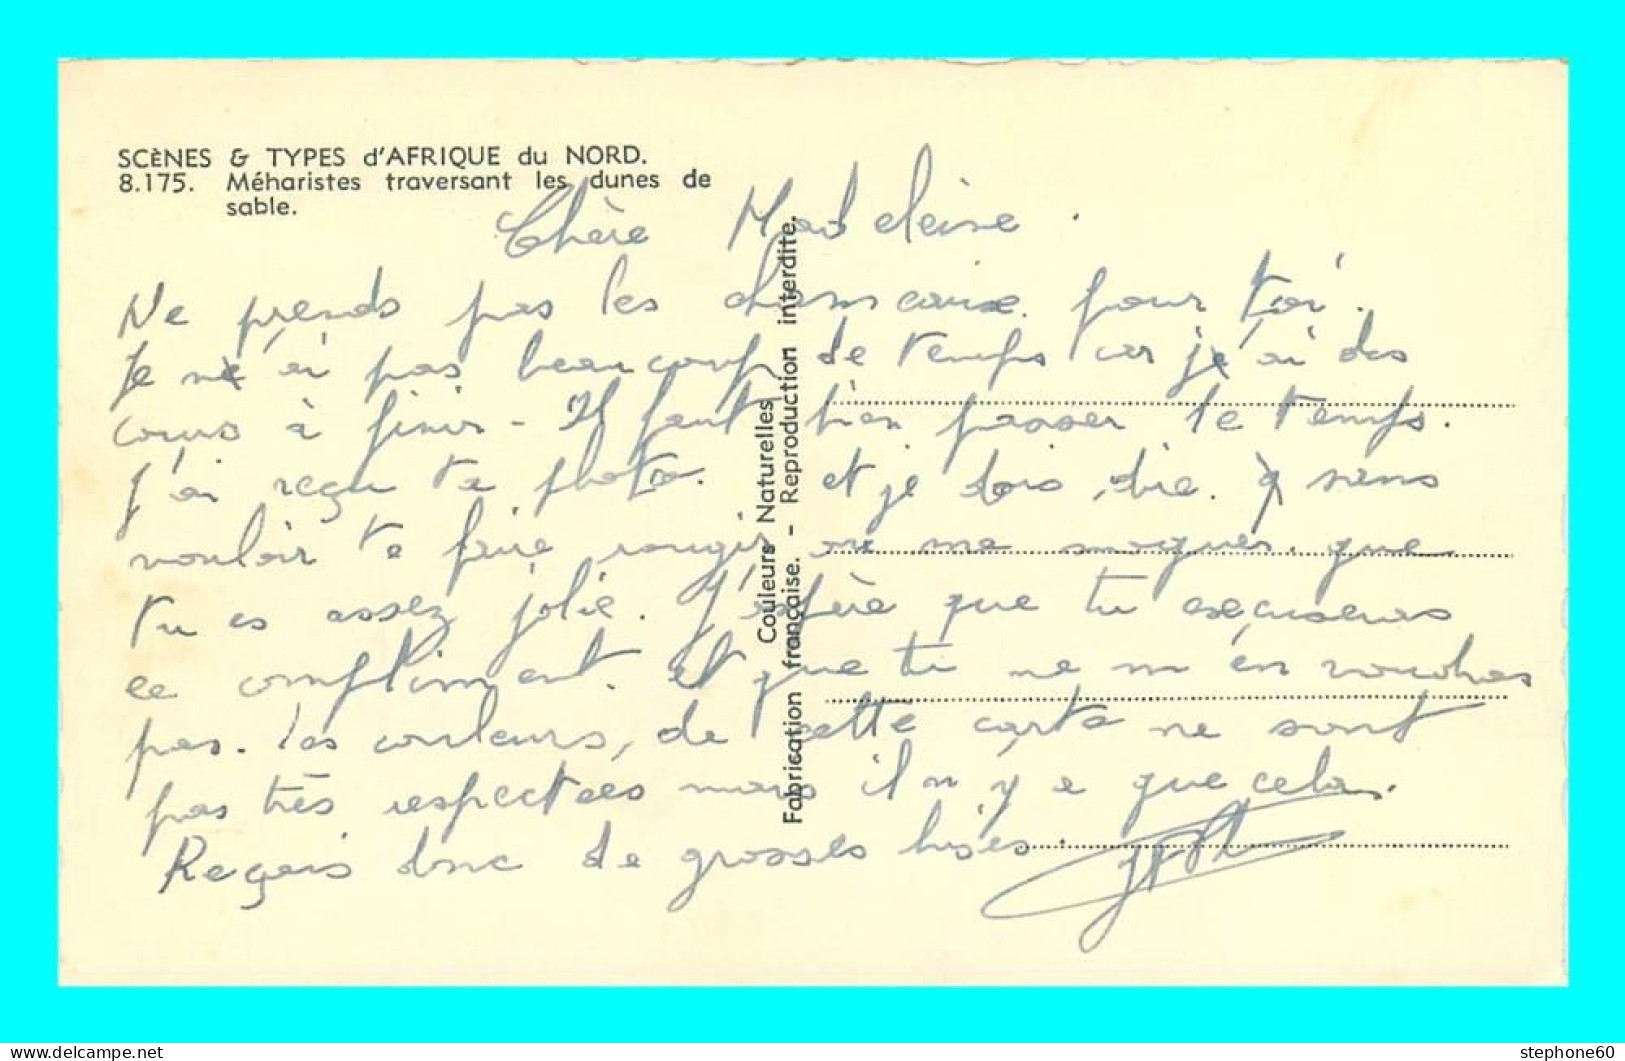 SCÈNES & TYPES d'AFRIQUE du NORD.
8.175. Méharistes traversant les dunes de
sable.
Chère Madeleine.
Ne prends pas les chameaux pour toi.
Je n'ai pas beaucoup de temps car j'ai des
cours à finir - Il faut bien passer le temps.
J'ai reçu ta photo. et je dois dire. sans
vouloir te faire rougir ou me moquer. que
tu es assez jolie. J'espère que tu excuseras
ce compliment. et que tu ne m'en voudras
pas. Les couleurs, de cette carte ne sont
pas très respectées mais il n'y a que cela.
Reçois donc de grosses bises.
Couleurs Naturelles
Fabrication française. - Reproduction interdite.
www.delcampe.net
stephone60